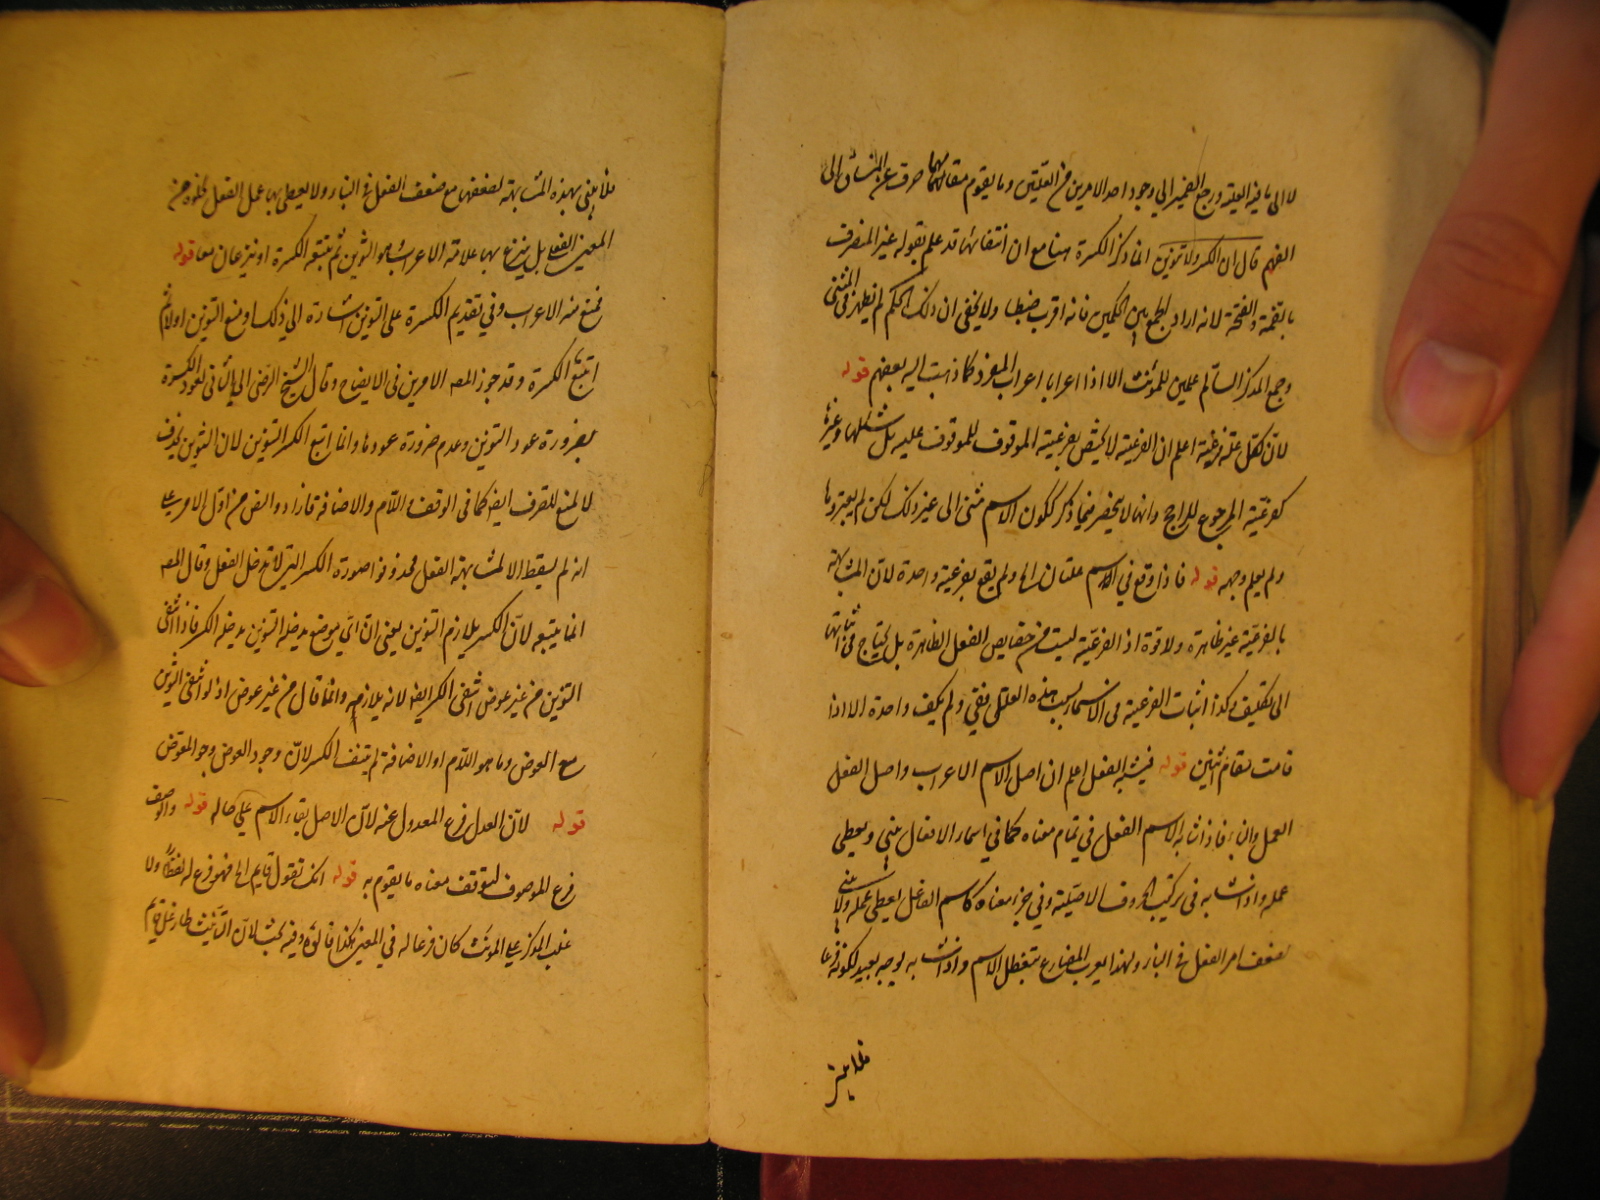 لا الى ما فيه العلية ورجع الضمير الى وجود احد الامرين من العلتين وما يقوم مقامهما صرف عن المنساق الى
الفهم قال ان لا كسر ولا تنوين انما ذكر الكسرة هنا مع ان انتفائها قد علم بقوله غير المنصرف
بالضمة والفتحة لانه اراد الجمع بين الحكمين فانه اقرب ضبطا ولا يخفى ان ذلك الحكم لم يظهر في المثنى
وجمع المذكر السالم علمين للمؤنث الا اذا اعربا اعراب المفرد كما ذهب اليه بعضهم قوله
لان لكل علة فرعية اعلم ان الفرعية لا يختص بفرعية الموقوف للموقوف عليه بل يشملها وغيرها
كفرعية المرجوع للراجح وانها لا ينحصر فيما ذكر ككون الاسم مثنى الى غير ذلك لكن لم يعتبروها
ولم يعلم وجهه قوله فاذا وقع في الاسم علتان الخ ولم يقو بفرعية واحدة لان المشابهة
بالفرعية غير ظاهرة ولا قوة اذ الفرعية ليست من خصايص الفعل الظاهرة بل يحتاج في اثباتها
الى تكليف وكذا اثبات الفرعية في الاسماء بسبب هذه العلل خفي ولم يكف واحدة الا اذا
قامت مقام اثنين قوله فيشبه الفعل اعلم ان اصل الاسم الاعراب واصل الفعل
العمل والبناء فاذا شابه الاسم الفعل في تمام معناه كما في اسماء الافعال يبنى ويعطى
عمله واذا شابه في تركيب الحروف الاصلية وفي جزء معناه كاسم الفاعل يعطى عمله ولا يبنى
لضعف امر الفعل في البناء ولهذا يعرب المضارع بتطفل الاسم واذا شابه بوجه بعيد ككونه فرعا
فلا يبنى
فلا يبنى بهذه المشابهة لضعفها مع ضعف الفعل في البناء ولا يعطى بها عمل الفعل لخلوه من
المعنى الفعلي بل ينزع بها علامة الاعراب هو التنوين ثم يتبعه الكسرة او ينزعان معا قوله
فمنع منه الاعراب وفي تقديم الكسرة على التنوين اشارة الى ذلك او منع التنوين اولا ثم
اتبع الكسرة وقد جوز المصه الامرين في الايضاح وقال الشيخ الرضى الى الثاني لعود الكسرة
بضرورة عود التنوين وعدم ضرورة عودها وانما اتبع الكسر التنوين لان التنوين يحذف
لا لمنع الصرف ايضا كما في الوقف واللام والاضافة فارادوا النص من اول الامر على
انه لم يسقط الا لمشابهة الفعل فحذفوا صورة الكسر التي لا تدخل الفعل وقال المصه
انما يتبعه لان الكسر يلازم التنوين يعني ان اي موضع يدخله التنوين يدخله الكسر فاذا انتفى
التنوين من غير عوض انتفى الكسر ايضا لانه يلازمه وانما قال من غير عوض اذ لو انتفى التنوين
مع العوض وما هو اللام او الاضافة لم ينتف الكسر لان وجود العوض وجود المعوض
قوله لان العدل فرع المعدول عنه لان الاصل بقاء الاسم على حاله قوله والوصف
فرع الموصوف لتوقف معناه ما يقوم به قوله انك تقول قايم الخ فهو فرع له لفظا ولا
غلب المذكر على المؤنث كان فرعا له في المعنى هكذا قالوه وفيه بحث لان التانيث طار على قايم